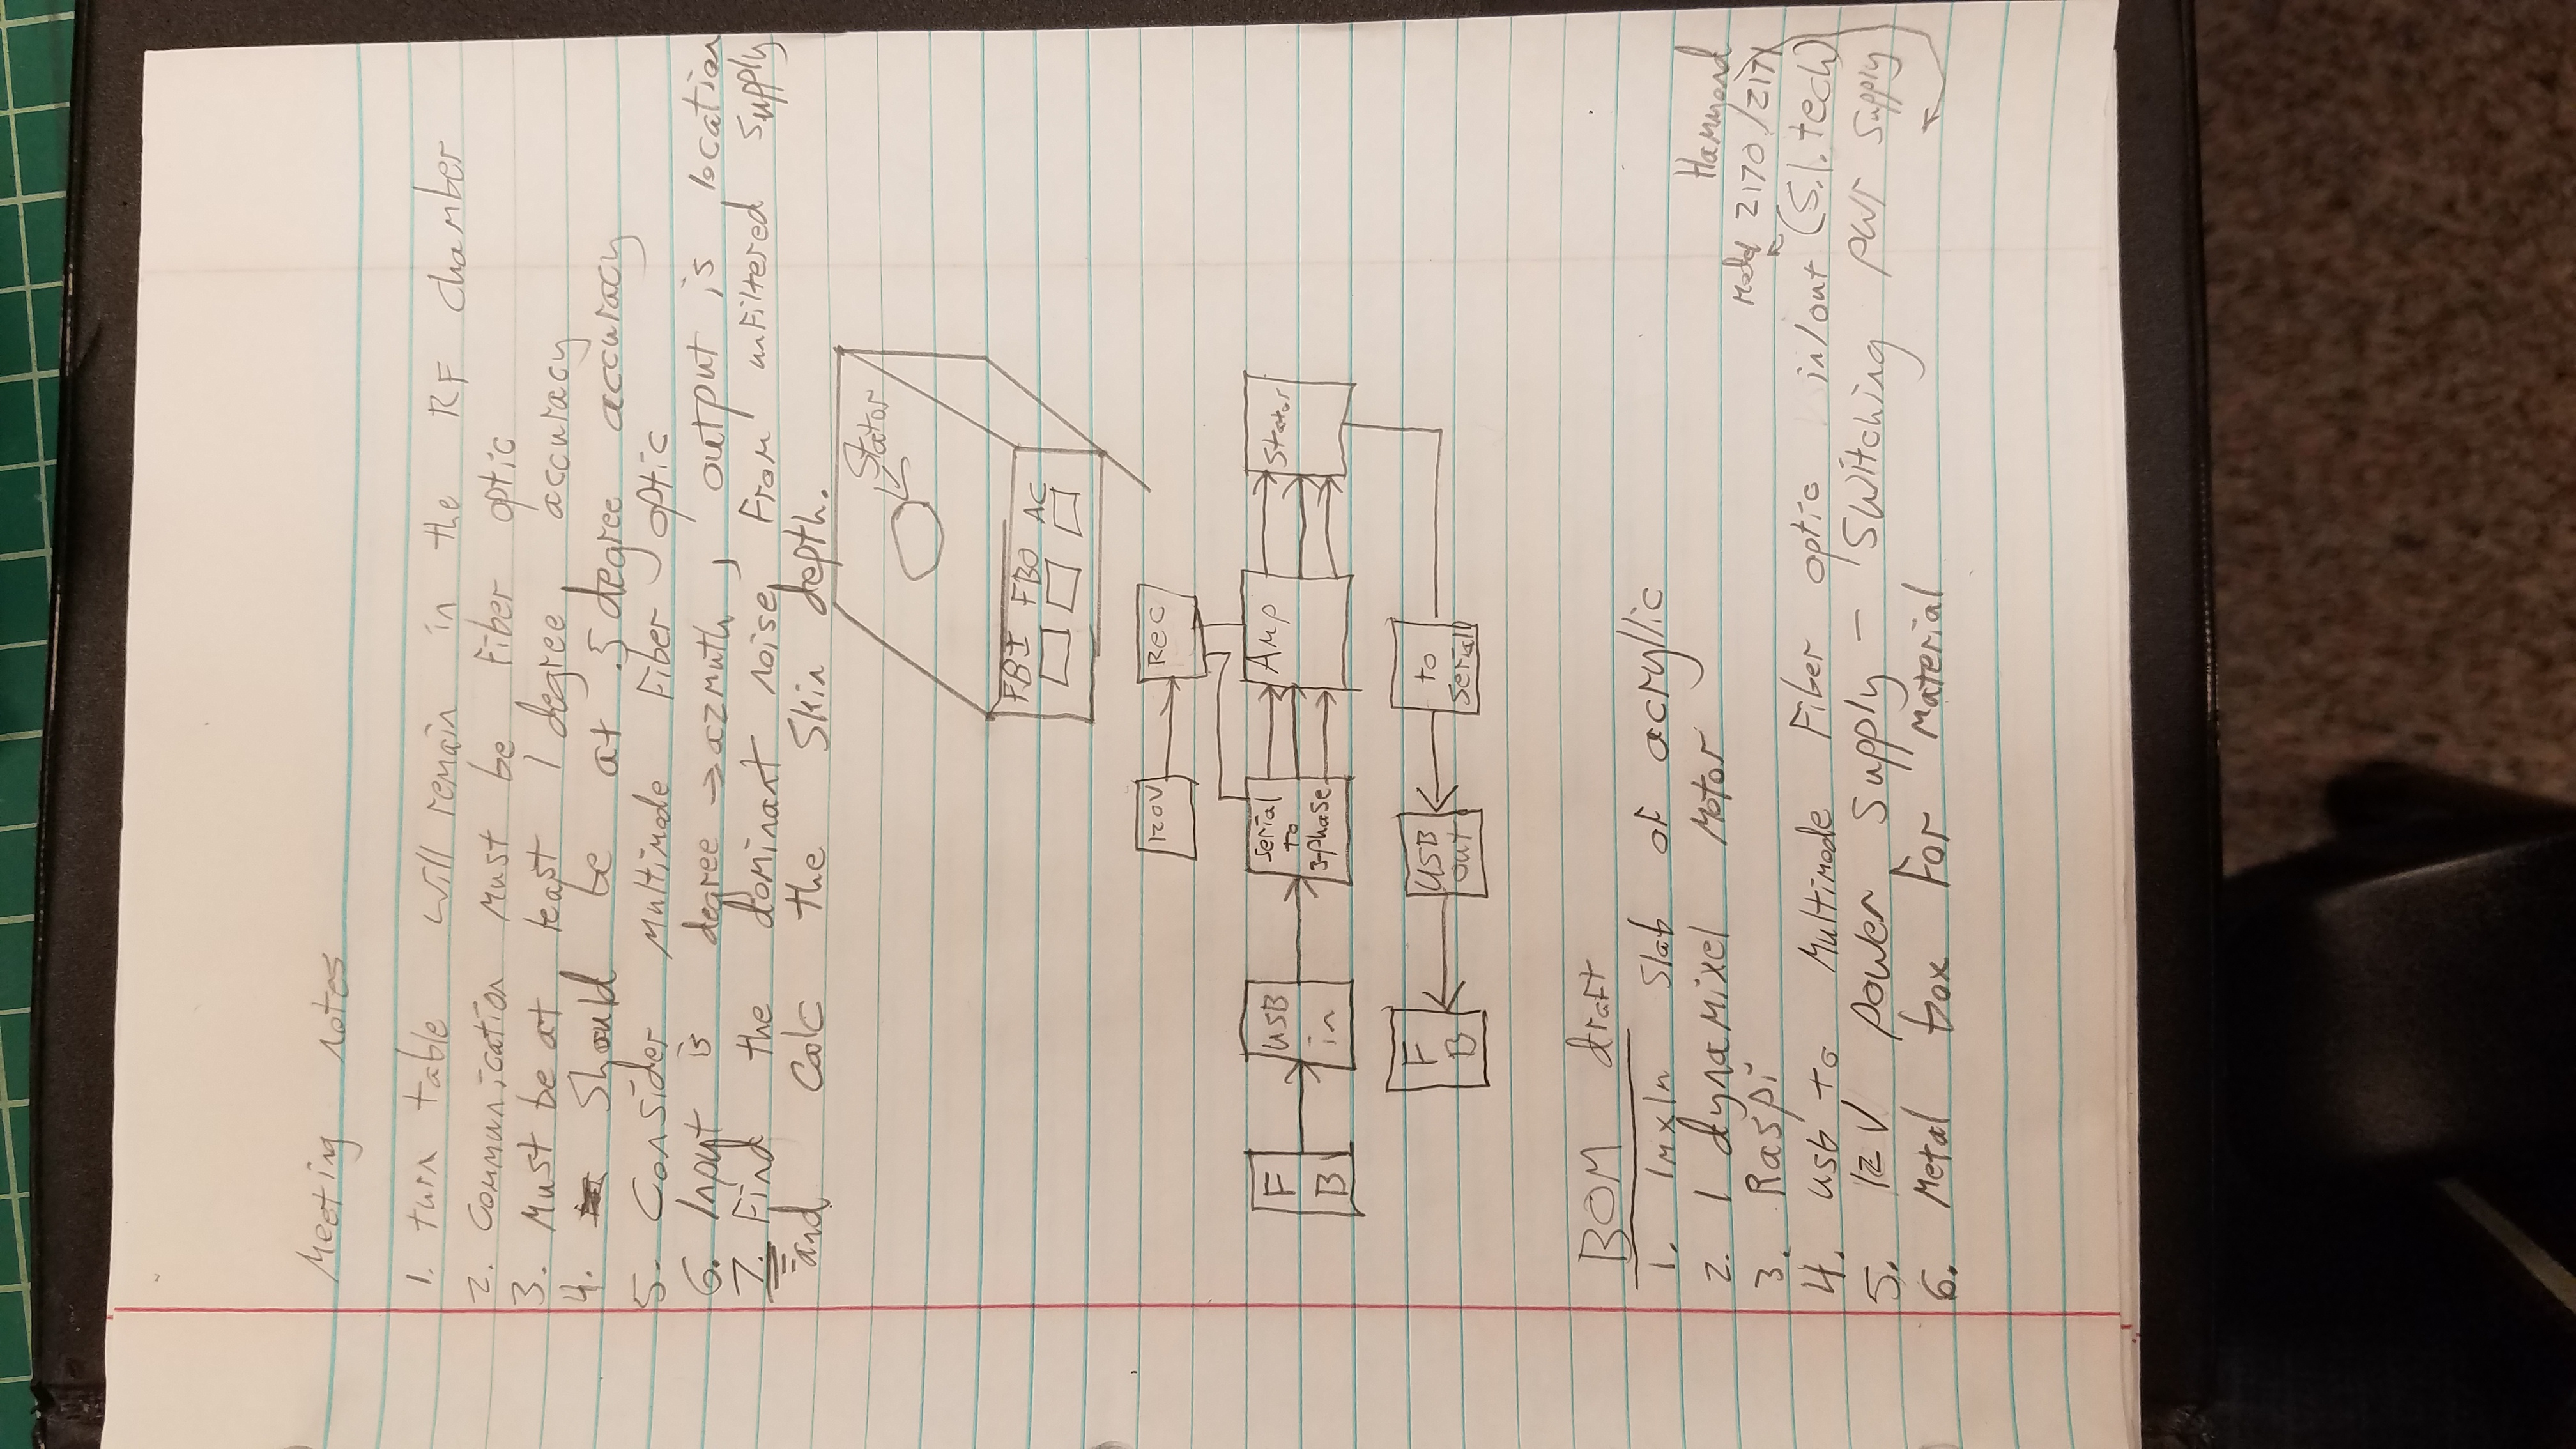 Meeting notes
1. turn table will remain in the RF chamber
2. Communication must be fiber optic
3. Must be at least 1 degree accuracy
4. Should be at .5 degree accuracy
5. Consider multimode fiber optic
6. Input is degree → azmuth, output is location
7. Find the dominant noise from unfiltered supply
and calc the skin depth.
Stator
FBI FBO AC
120V Rec
F B
USB in
serial to 3-phase
Amp
Stator
F B
USB out
to serial
BOM draft
1. 1mx1m slab of acryllic
2. 1 dynamixel motor
Hammond
3. Raspi
Model 2170/2171
4. usb to multimode fiber optic in/out (S.I. tech)
5. 12V power supply - switching pwr supply
6. Metal box for material